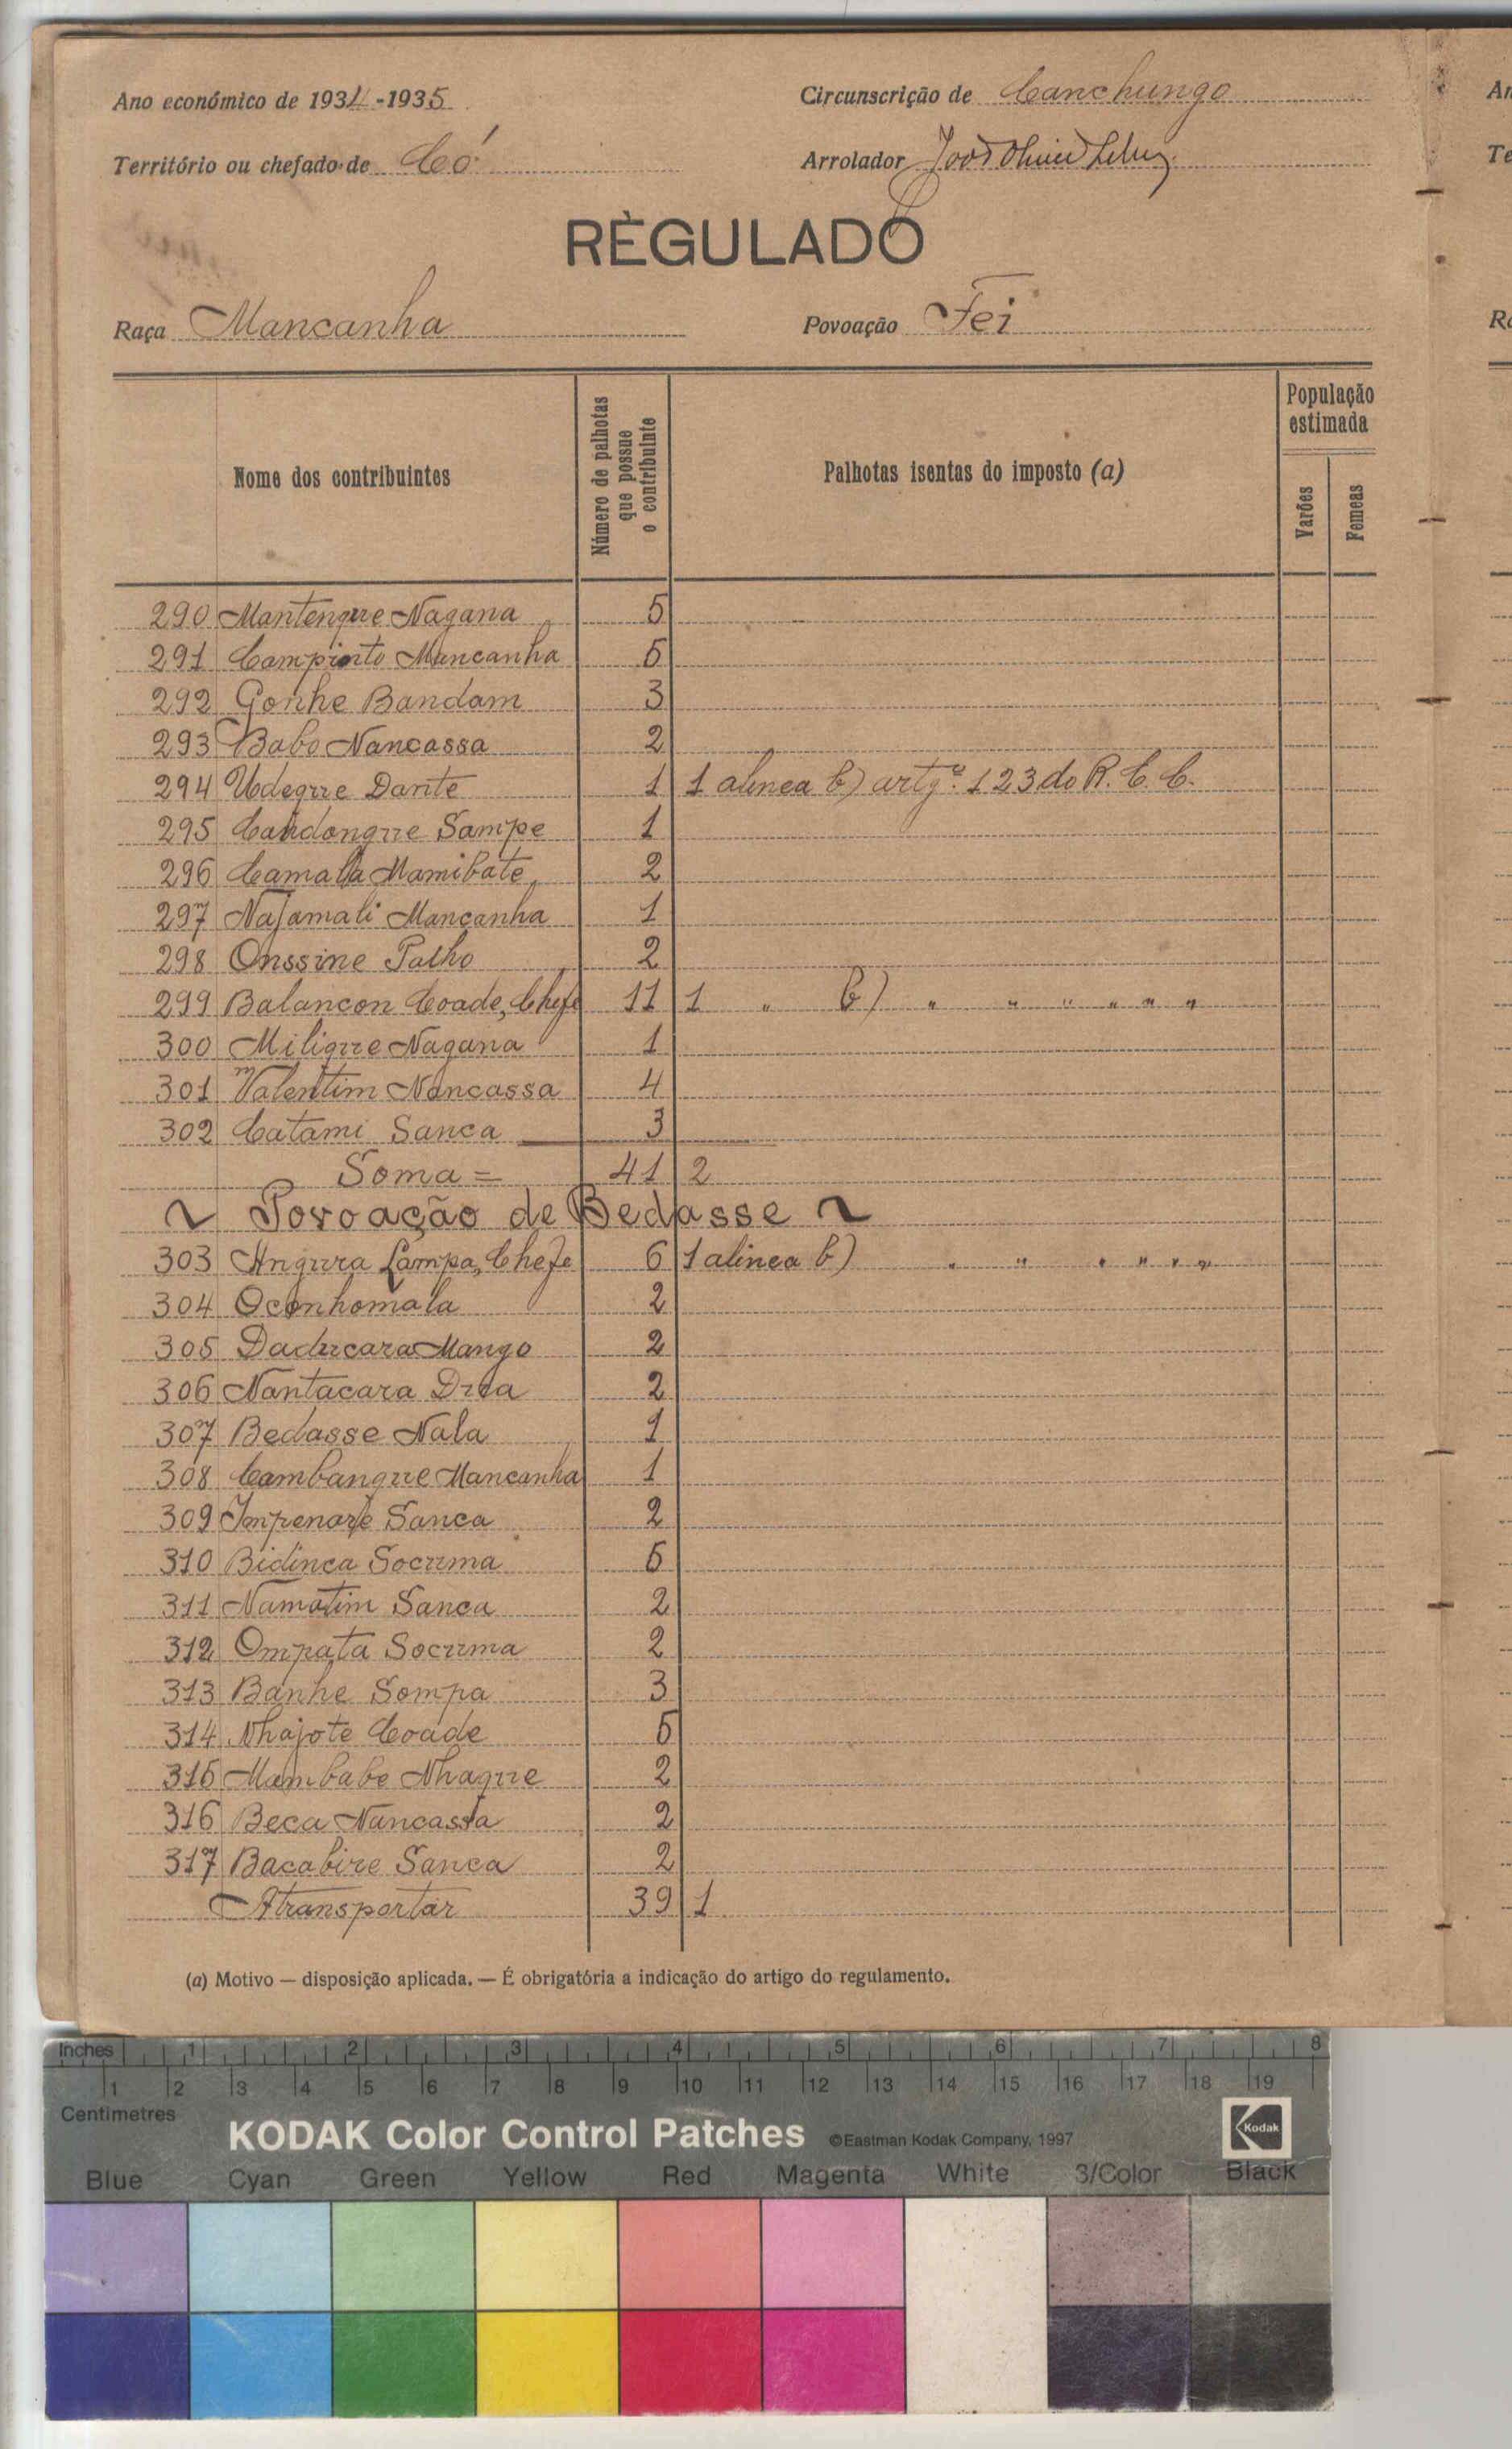 Ano económico de 1934-1935 Circunscrição de Canchungo
Território ou chefado de Có Arrolador
RÈGULADO
Raça Mancanha Povoação Fei
Nome dos contribuintes
Número de palhotas que possue o contribuinte
Palhotas isentas do imposto (a)
População estimada
Varões
Femeas
290 Mantenque Nagana 5
291 Campinto Mancanha 5
292 Gonhe Bandam 3
293 Babo Nancassa 2
294 Udeque Dante 1 1 alinea b) artgº. 123 do R. C. C.
295 Candongue Sampe 1
296 Camala Mamibate 2
297 Najamali Mancanha 1
298 Onssine Palho 2
299 Balancon Coade, Chefe 11 1 " b) " " " " " "
300 Milique Nagana 1
301 Valentim Nancassa 4
302 Catami Sanca 3
Soma = 41 2
~ Povoação de Bedasse ~
303 Angura Lampa, Chefe 6 1 alinea b) " " " " " "
304 Oconhomala 2
305 Daducara Mango 2
306 Nantacara 2
307 Bedasse Nala 1
308 Cambangue Mancanha 1
309 Impenare Sanca 2
310 Bidinca Socuma 5
311 Namatim Sanca 2
312 Ompata Socuma 2
313 Banhe Sompa 3
314 Nhajote Coade 5
315 Mambabo Nhaque 2
316 Beca Nancassa 2
317 Bacabire Sanca 2
A transportar 39 1
(a) Motivo — disposição aplicada. — É obrigatória a indicação do artigo do regulamento.
Inches 1 2 3 4 5 6 7 8
1 2 3 4 5 6 7 8 9 10 11 12 13 14 15 16 17 18 19
Centimetres
KODAK Color Control Patches ©Eastman Kodak Company, 1997 Kodak
Blue Cyan Green Yellow Red Magenta White 3/Color Black